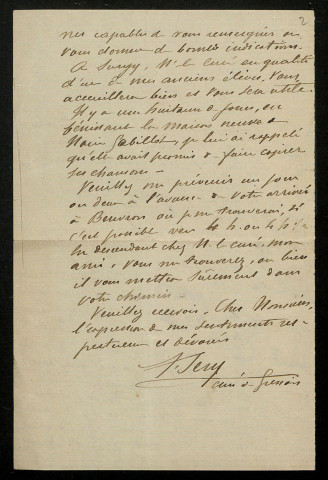 2
nes capables de vous renseigner ou
vous donner de bonnes indications.
A Surgy, M. le curé en qualité
d'un de mes anciens élèves, vous
accueillera bien et vous sera utile.
Il y a une huitaine de jours, en
bénissant la maison neuve de
Marie Gabillot, je lui ai rappelé
qu'elle avait promis de faire copier
ses chansons.
Veuillez me prévenir un jour
ou deux à l'avance de votre arrivée
à Beuvron où je me trouverai, si
c'est possible vers 4 h. ou 4 h. ½
En descendant chez M. le curé, mon
ami, vous me trouverez, ou bien
il vous mettra sûrement dans
votre chemin.
Veuillez recevoir, Cher Monsieur,
l'expression de mes sentiments res-
pectueux et dévoués
curé de